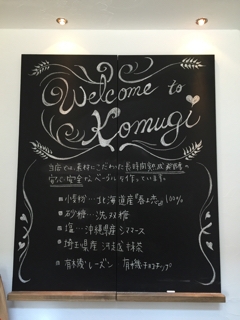 Welcome to
Komugi
当店では、素材にこだわった長時間熟成
安心・安全な ベーグルを作っています。
小麦粉…北海道産『春よ恋』100%
砂糖…洗双糖
塩…沖縄県産シママース
埼玉県産 河越抹茶
有機レーズン 有機チョコチップ